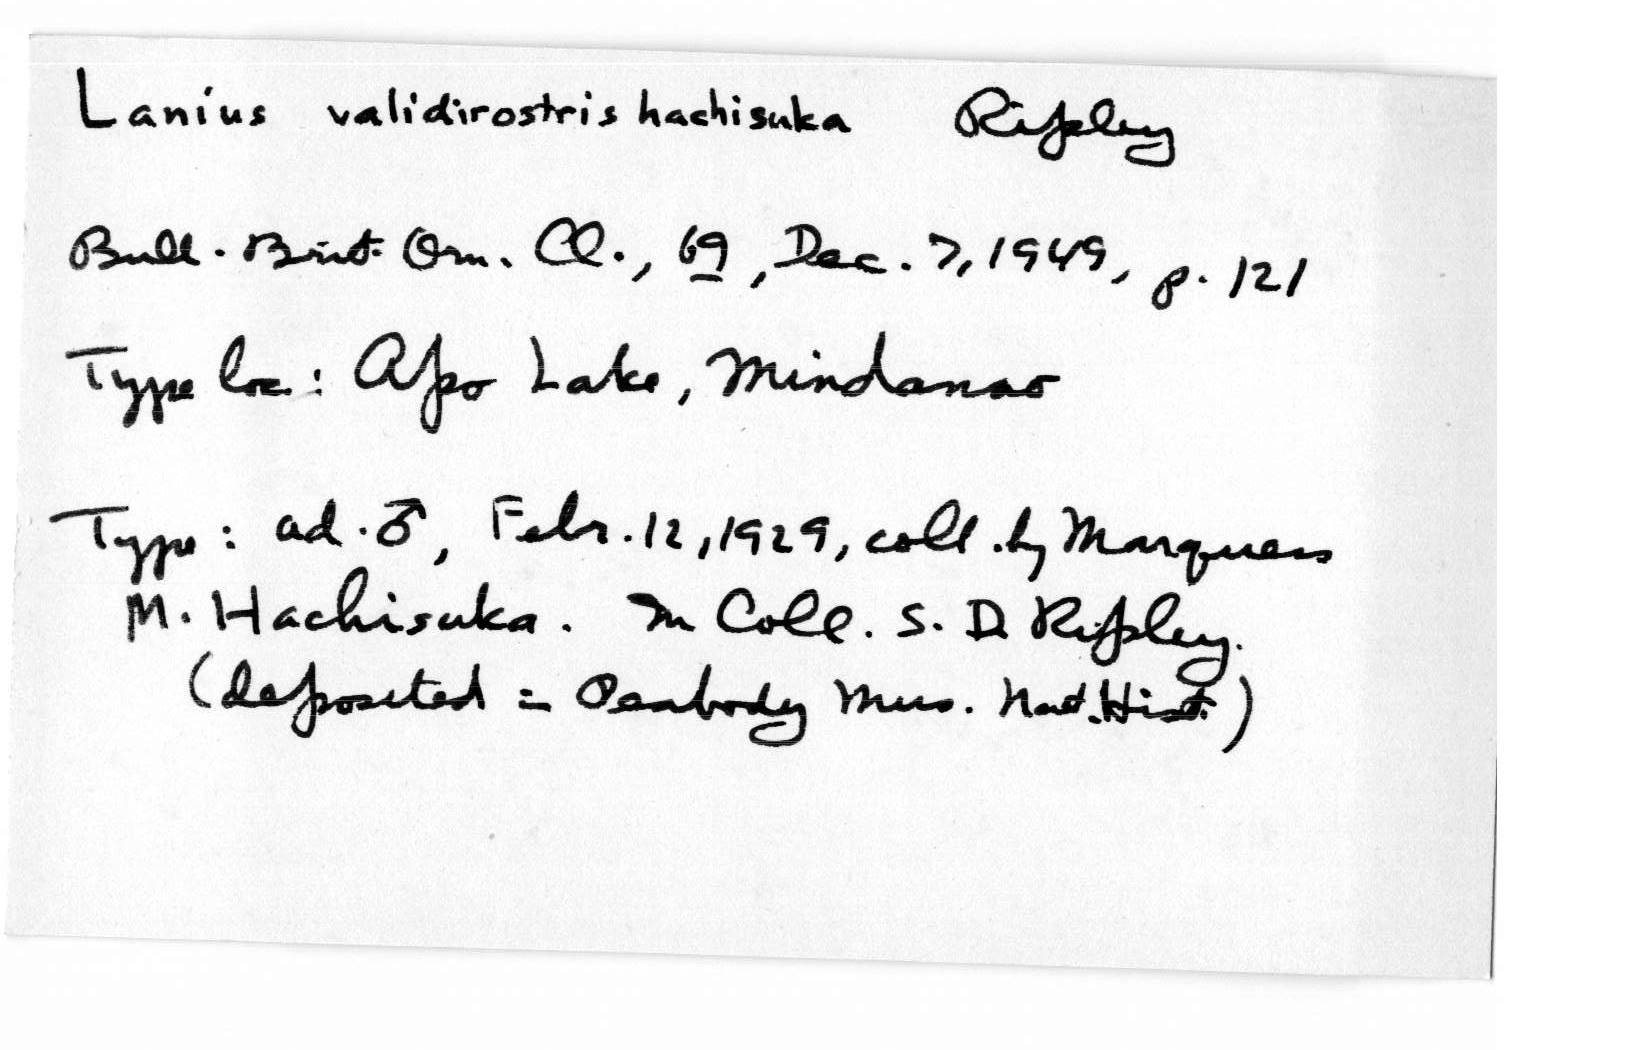 Lanius validirostris hachisuka Ripley
Bull. Brit. Orn. Cl., 69, Dec. 7, 1949, p. 121
Type loc: Apo Lake, Mindanao
Type: ad. ♂, Febr. 12, 1929, coll. by Marquess
M. Hachisuka. In Coll. S. D. Ripley.
(deposited in Peabody Mus. Nat. Hist.)